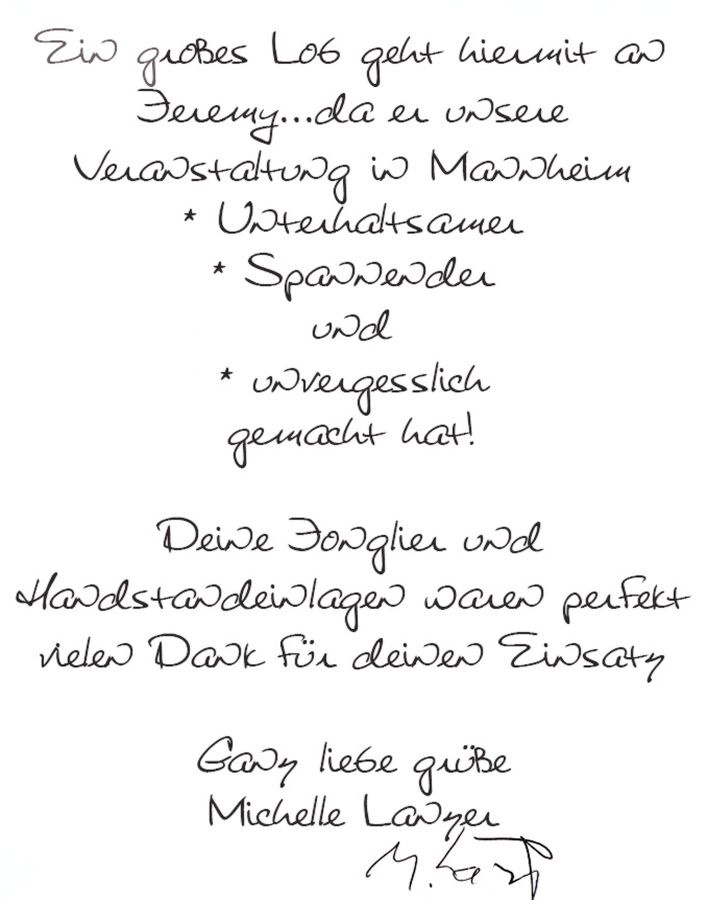 Ein großes Lob geht hiermit an
Jeremy...da er unsere
Veranstaltung in Mannheim
* Unterhaltsamer
* Spannender
und
* unvergesslich
gemacht hat!
Deine Jonglier und
Handstandeinlagen waren perfekt
vielen Dank für deinen Einsatz
Ganz liebe grüße
Michelle Lanzer